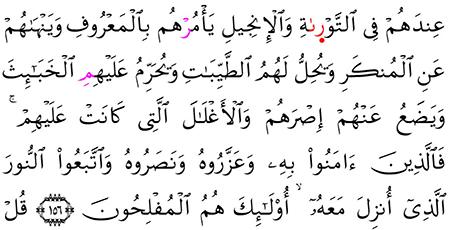 عِندَهُمْ فِي ٱلتَّوْرىٰةِ وَٱلْإِنجِيلِ يَأْمُرْهُم بِٱلْمَعْرُوفِ وَيَنْهَىٰهُمْ
عَنِ ٱلْمُنكَرِ وَيُحِلُّ لَهُمُ ٱلطَّيِّبَٰتِ وَيُحَرِّمُ عَلَيْهِمِ ٱلْخَبَٰٓئِثَ
وَيَضَعُ عَنْهُمْ إِصْرَهُمْ وَٱلْأَغْلَٰلَ ٱلَّتِي كَانَتْ عَلَيْهِمْ ۚ
فَٱلَّذِينَ ءَامَنُوا۟ بِهِۦ وَعَزَّرُوهُ وَنَصَرُوهُ وَٱتَّبَعُوا۟ ٱلنُّورَ
ٱلَّذِيٓ أُنزِلَ مَعَهُۥٓ ۙ أُو۟لَٰٓئِكَ هُمُ ٱلْمُفْلِحُونَ ﴿١٥٦﴾ قُلْ